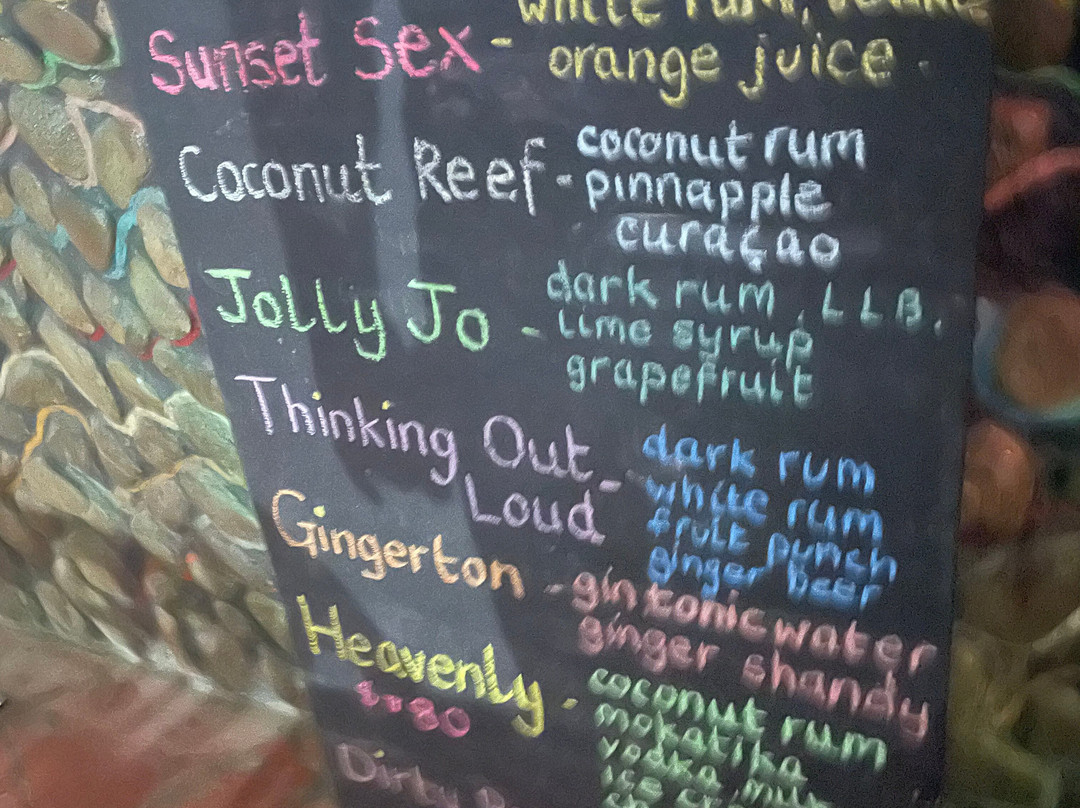 white rum,
Sunset Sex - orange juice.
Coconut Reef - coconut rum
pinnapple
curaçao
Jolly Jo - dark rum, LLB,
lime syrup
grapefruit
Thinking Out - dark rum
Loud white rum
fruit punch
ginger beer
Gingerton - gin tonic water
ginger shandy
Heavenly - coconut rum
vodka, milk
ice
Dirty